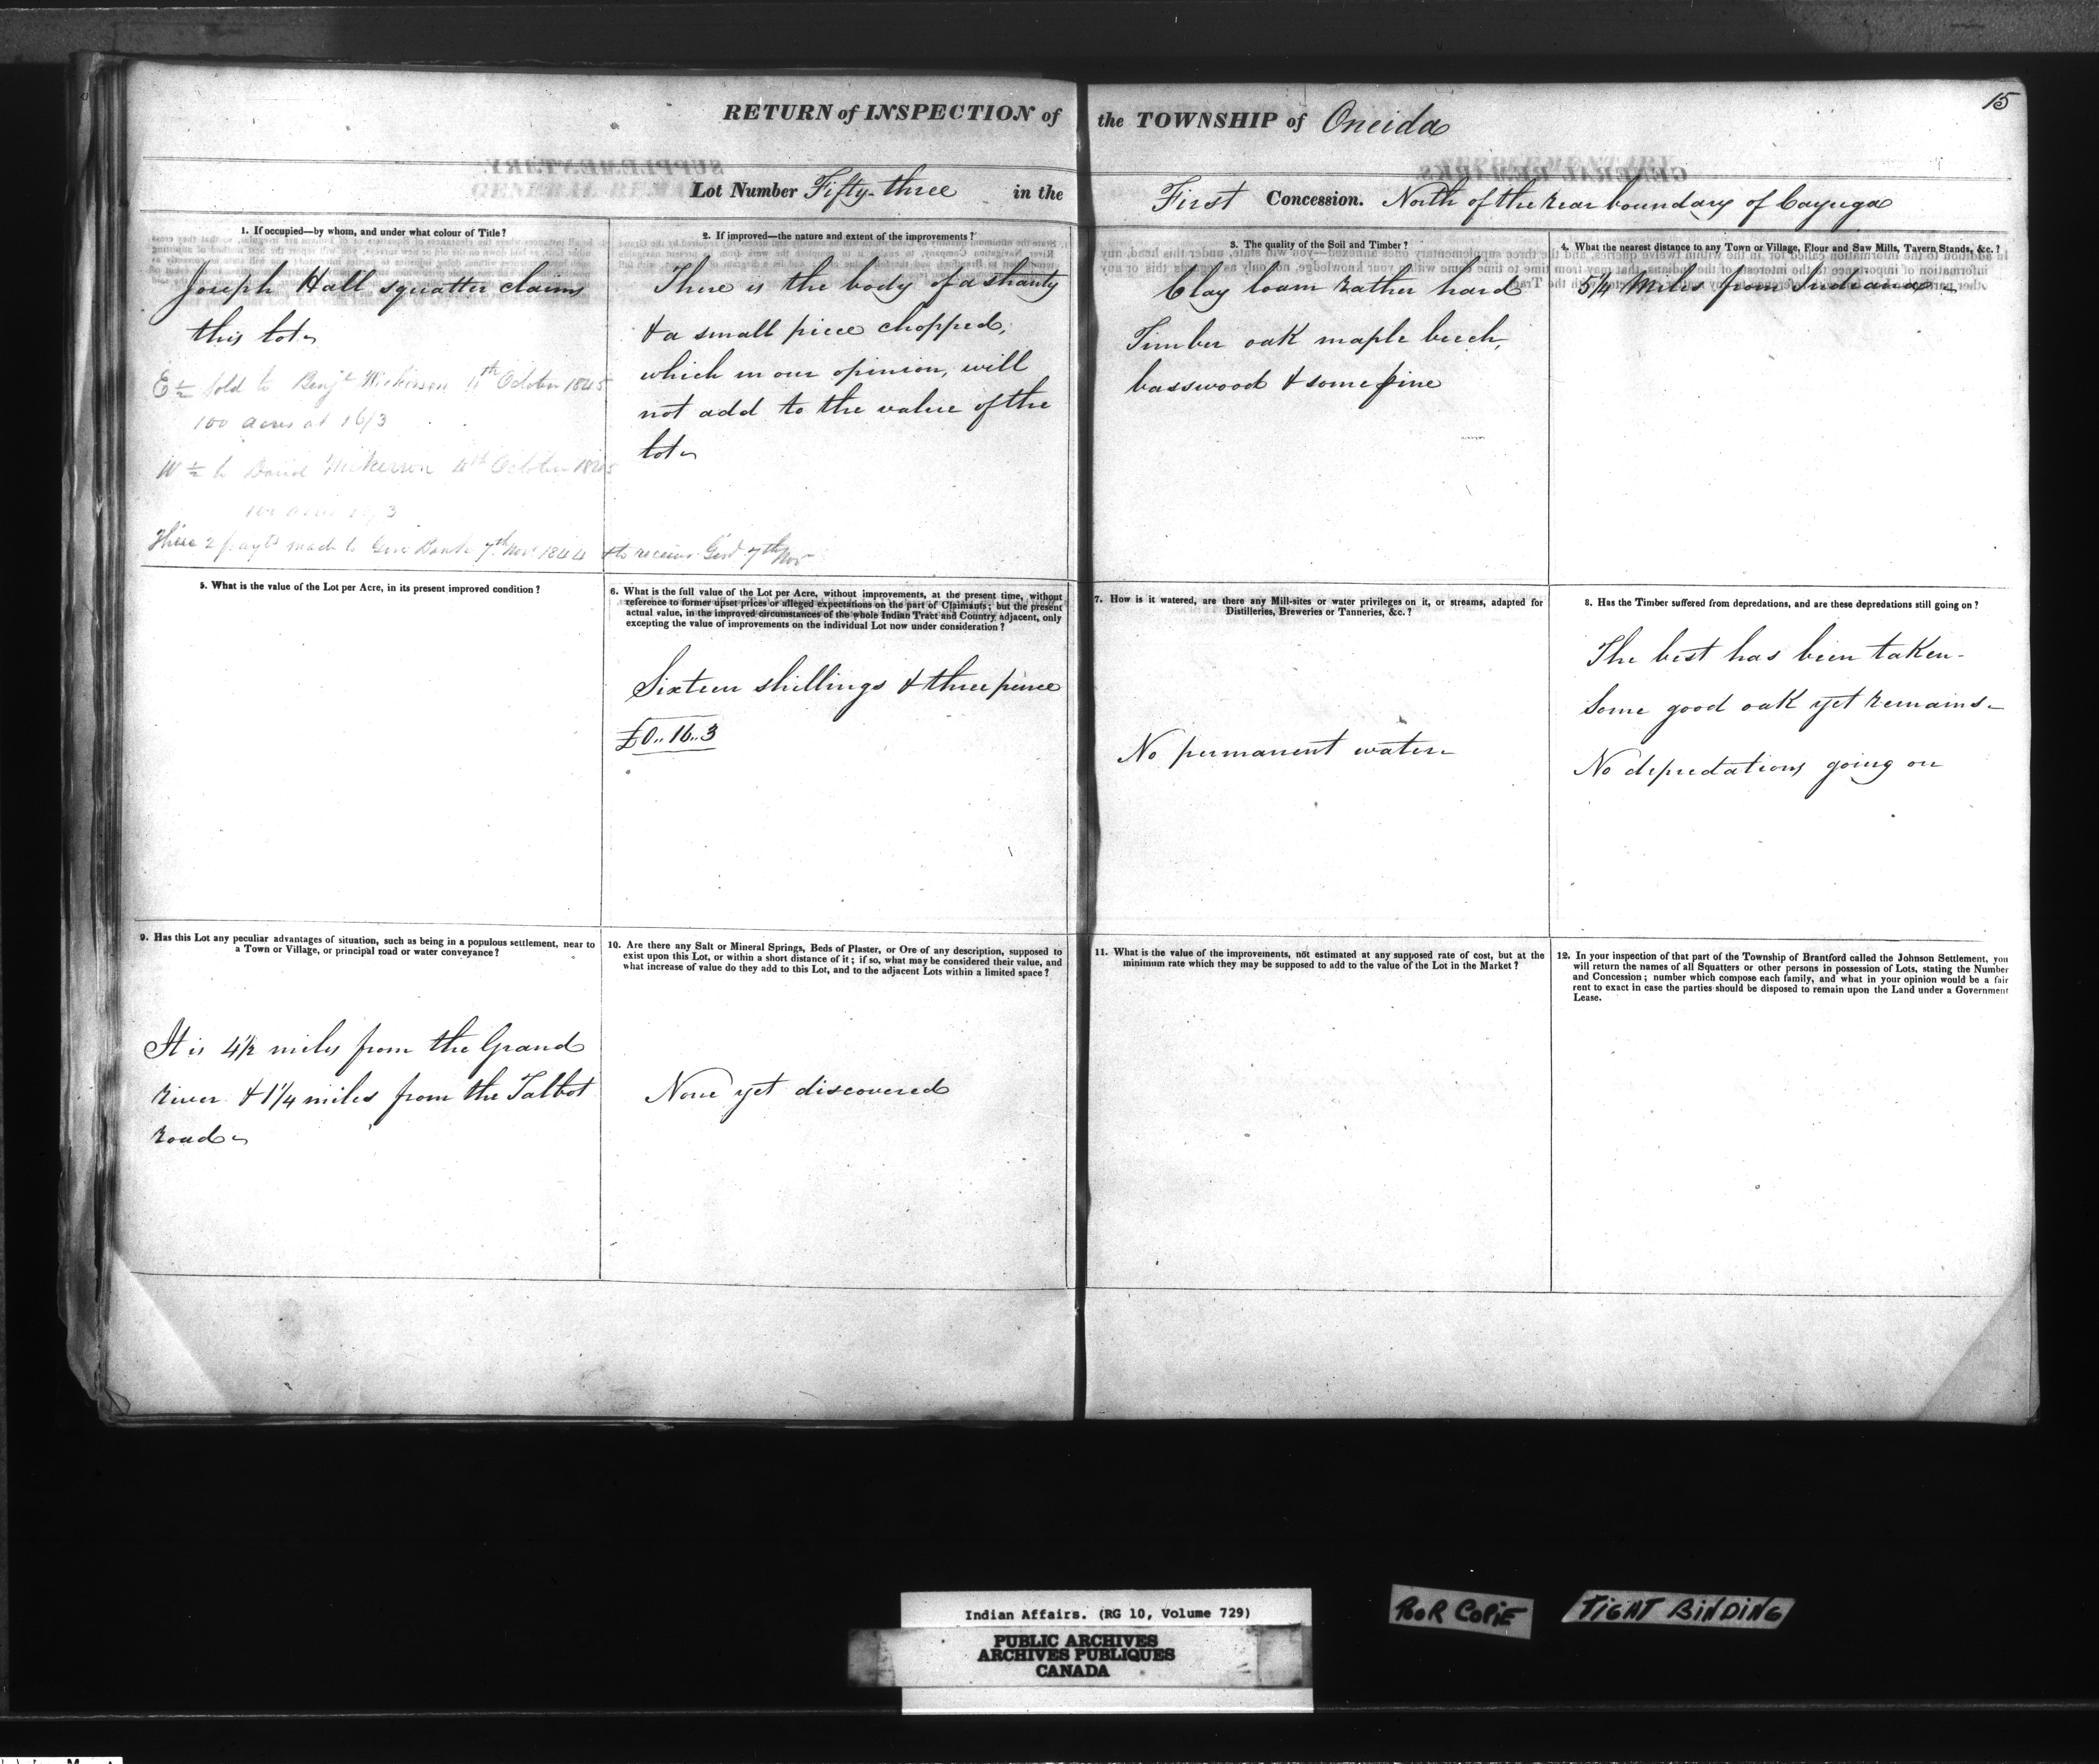 15
RETURN of INSPECTION of the TOWNSHIP of Oneida
Lot Number Fifty-three in the First Concession. North of the rear boundary of Cayuga
1. If occupied—by whom, and under what colour of Title?
Joseph Hall squatter claims
this lot
E ½ sold to Benjn Nickerson 4th October 1845
100 acres at 16/3
W ½ to David Nickerson 4th October 1845
100 acres 16/3
2 payts made to Gore Bank 7th Nov 1844 & to receiver Genl 7th Nov
2. If improved—the nature and extent of the improvements?
There is the body of a shanty
& a small piece chopped,
which in our opinion, will
not add to the value of the
lot
3. The quality of the Soil and Timber?
Clay loam rather hard
Timber oak maple beech,
basswood & some pine
4. What the nearest distance to any Town or Village, Flour and Saw Mills, Tavern Stands, &c.?
5¼ Miles from Indiana
5. What is the value of the Lot per Acre, in its present improved condition?
6. What is the full value of the Lot per Acre, without improvements, at the present time, without
reference to former upset prices or alleged expectations on the part of Claimants; but the present
actual value, in the improved circumstances of the whole Indian Tract and Country adjacent, only
excepting the value of improvements on the individual Lot now under consideration?
Sixteen shillings & three pence
£0..16..3
7. How is it watered, are there any Mill-sites or water privileges on it, or streams, adapted for
Distilleries, Breweries or Tanneries, &c.?
No permanent water
8. Has the Timber suffered from depredations, and are these depredations still going on?
The best has been taken-
Some good oak yet remains-
No depredations going on
9. Has this Lot any peculiar advantages of situation, such as being in a populous settlement, near to
a Town or Village, or principal road or water conveyance?
It is 4½ miles from the Grand
River & 1¼ miles from the Talbot
road
10. Are there any Salt or Mineral Springs, Beds of Plaster, or Ore of any description, supposed to
exist upon this Lot, or within a short distance of it; if so, what may be considered their value, and
what increase of value do they add to this Lot, and to the adjacent Lots within a limited space?
None yet discovered
11. What is the value of the improvements, not estimated at any supposed rate of cost, but at the
minimum rate which they may be supposed to add to the value of the Lot in the Market?
12. In your inspection of that part of the Township of Brantford called the Johnson Settlement, you
will return the names of all Squatters or other persons in possession of Lots, stating the Number
and Concession; number which compose each family, and what in your opinion would be a fair
rent to exact in case the parties should be disposed to remain upon the Land under a Government
Lease.
Indian Affairs. (RG 10, Volume 729)
PUBLIC ARCHIVES
ARCHIVES PUBLIQUES
CANADA
POOR COPIE
TIGHT BINDING